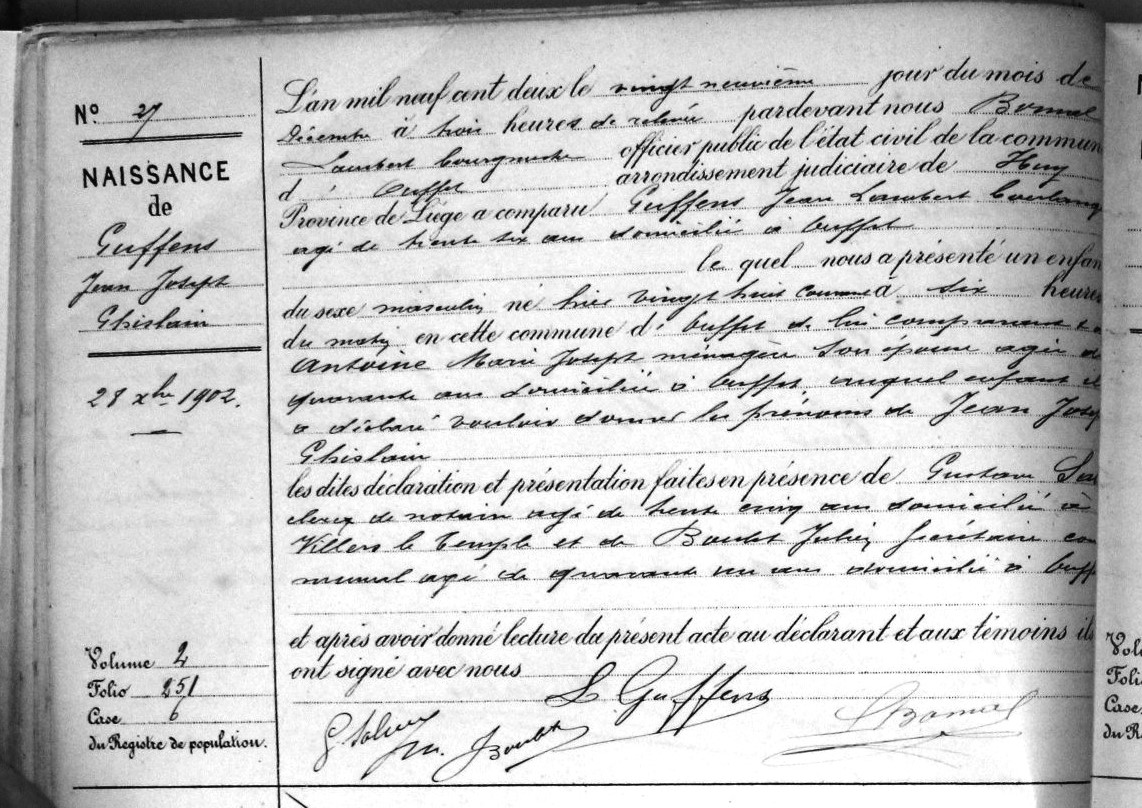 N° 27
NAISSANCE
de
Guffens
Jean Joseph
Ghislain
28 xbre 1902.
Volume 2
Folio 251
Case 6
du Registre de population.
L'an mil neuf cent deux le vingt neuvième jour du mois de
Décembre à trois heures de relevée pardevant nous Bonmal
Lambert bourgmestre officier public de l'état civil de la commun
d' Ouffet arrondissement judiciaire de Huy
Province de Liège a comparu Guffens Jean Lambert
agé de trente six ans domicilié à Ouffet
le quel nous a présenté un enfan
du sexe masculin né hier vingt huit courant à six heures
du matin en cette commune d' Ouffet de lui comparant et
Antoine Marie Joseph ménagère son épouse agée d
quarante ans domiciliée à Ouffet auquel enfant il
a déclaré vouloir donner les prénoms de Jean Josep
Ghislain
les dites déclaration et présentation faites en présence de Gustave
clerc de notaire agé de trente cinq ans domicilié à
Villers le Temple et de Boulet Julien secrétaire com
munal agé de quarante un ans domicilié à Ouffe
et après avoir donné lecture du présent acte au déclarant et aux témoins ils
ont signé avec nous
L Guffens
G Solvey
Ju. Boulet
LBonmal
Volu
Foli
Case
du R